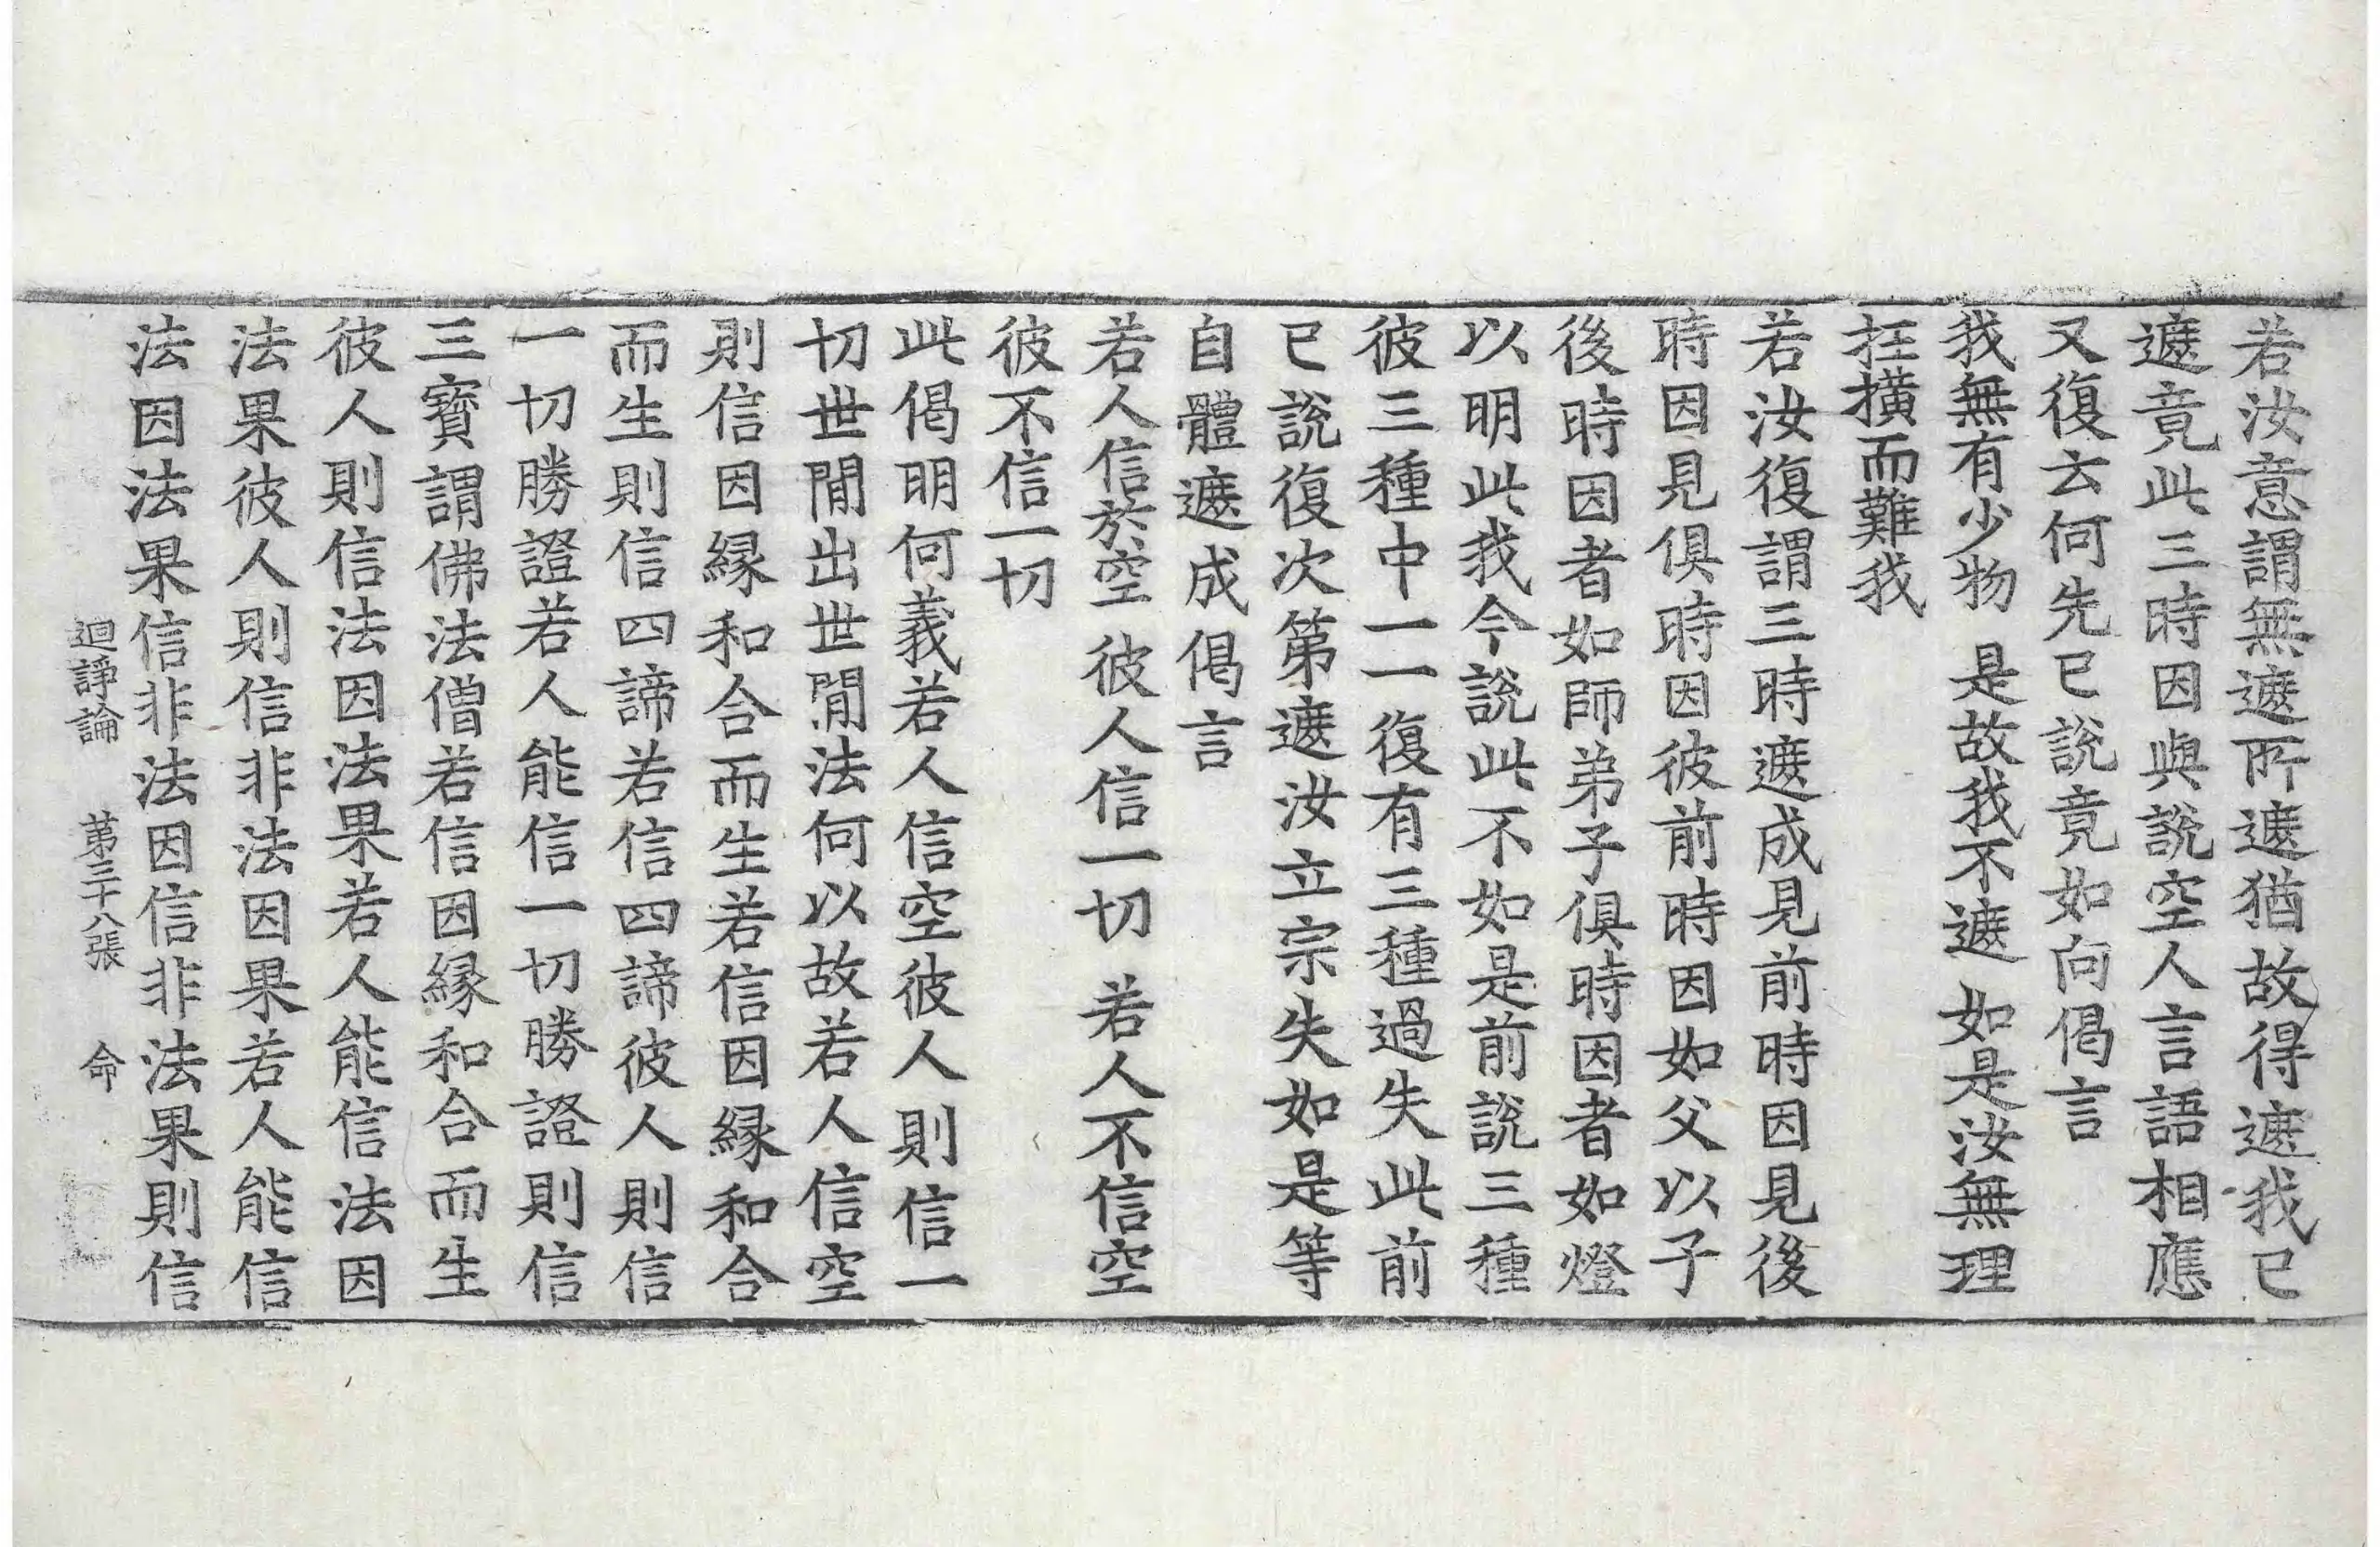 若汝意謂無遮所遮猶故得遮我已
遮竟此三時因與說空人言語相應
又復云何先已說竟如向偈言
我無有少物 是故我不遮 如是汝無理
抂撗而難我
若汝復謂三時遮成見前時因見後
時因見俱時因彼前時因如父以子
後時因者如師弟子俱時因者如燈
以明此我今說此不如是前說三種
彼三種中一一復有三種過失此前
已說復次第遮汝立宗失如是等
自體遮成偈言
若人信於空 彼人信一切 若人不信空
彼不信一切
此偈明何義若人信空彼人則信一
切世閒出世閒法何以故若人信空
則信因縁和合而生若信因縁和合
而生則信四諦若信四諦彼人則信
一切勝證若人能信一切勝證則信
三寳謂佛法僧若信因縁和合而生
彼人則信法因法果若人能信法因
法果彼人則信非法因果若人能信
法因法果信非法因信非法果則信
迴諍論 第三十八張 命